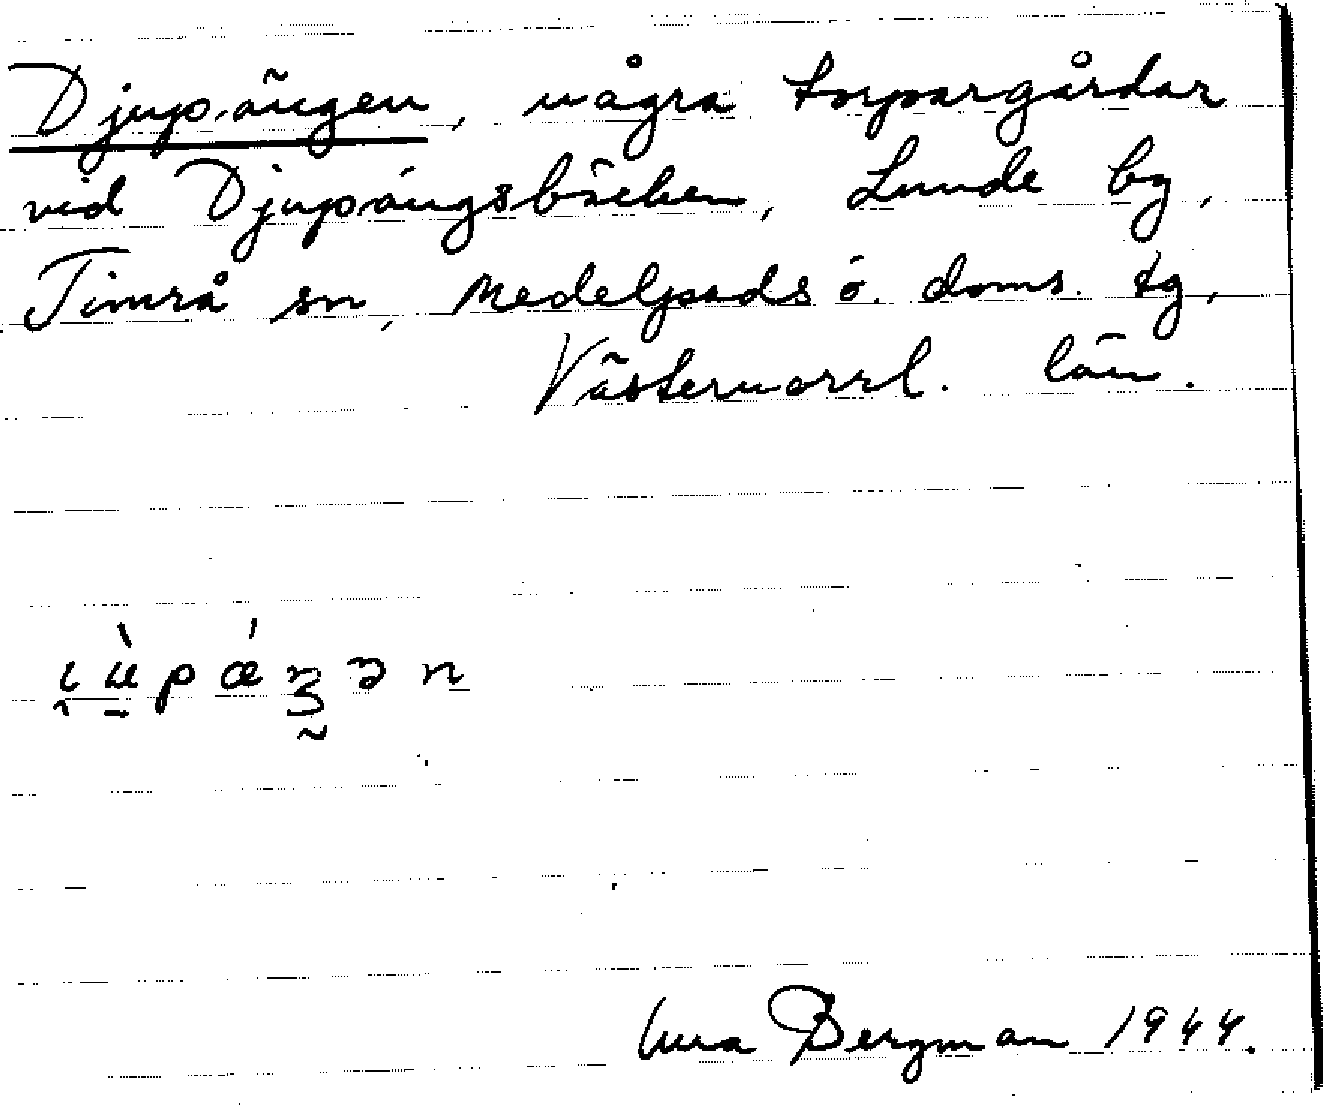 Djupängen, några torpargårdar
vid Djupängsbäcken, Lunde by,
Timrå sn, Medelpads ö. doms. tg,
Västernorrl. län.
Bergman 1944.